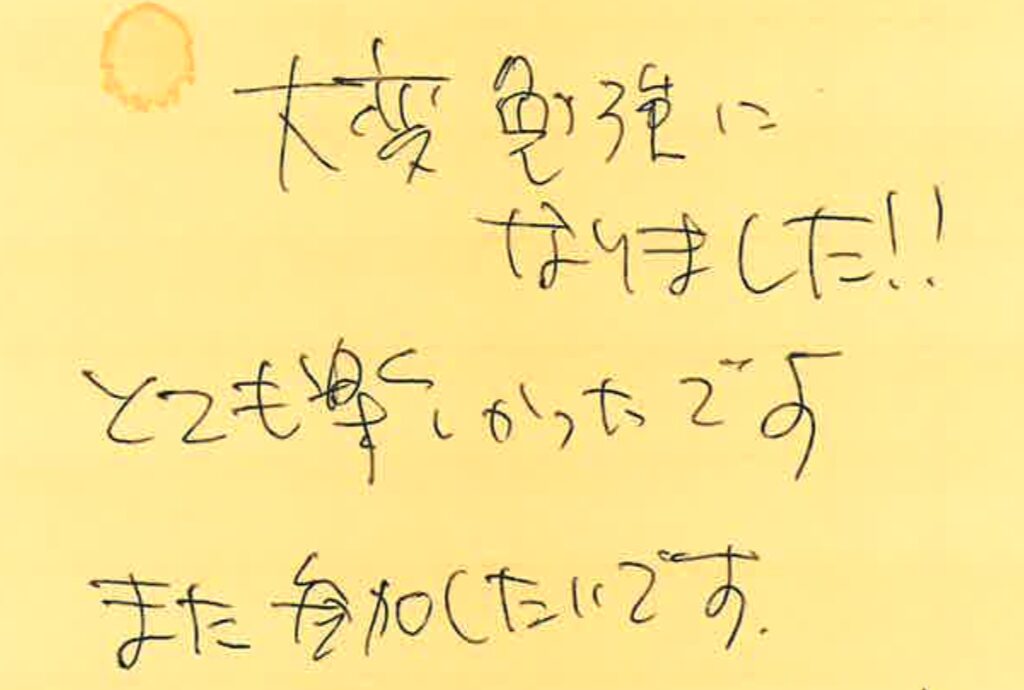 大変勉強に
なりました!!
とても楽しかったです
また参加したいです.